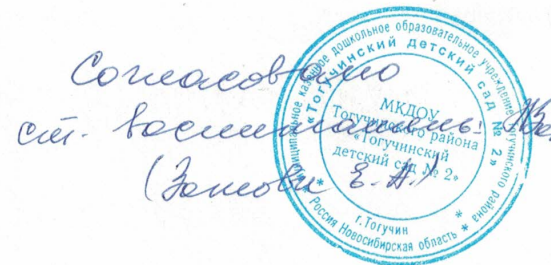 Согласовано
ст. воспитатель:
Е. А.)
Муниципальное казенное дошкольное образовательное учреждение Тогучинского района
«Тогучинский детский сад № 2»
МКДОУ
Тогучинского района
«Тогучинский
детский сад № 2»
г.Тогучин
* Россия Новосибирская область *